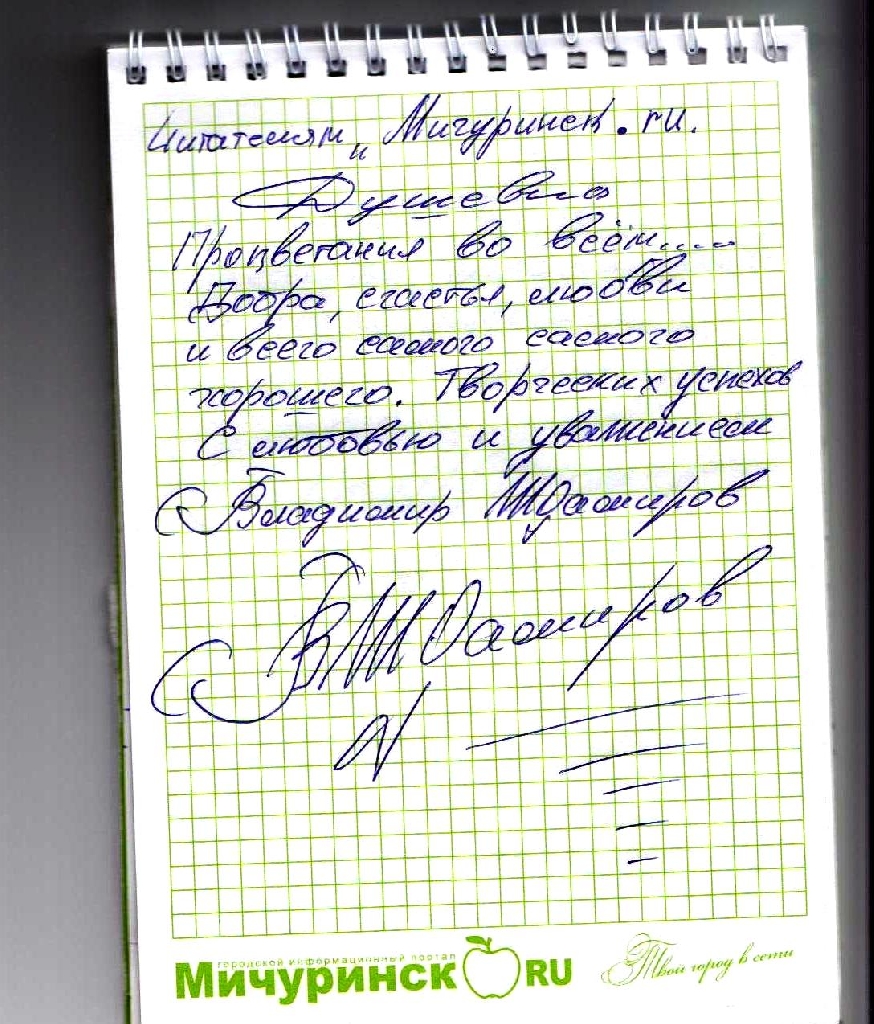 Читателям „Мичуринск.ru.
Душевно
Процветания во всём.....
Добра, счастья, любви
и всего самого самого
хорошего. Творческих успехов
С любовью и уважением
Владимир Ждамиров
ВЖдамиров
городской информационный портал
Мичуринск RU
Твой город в сети